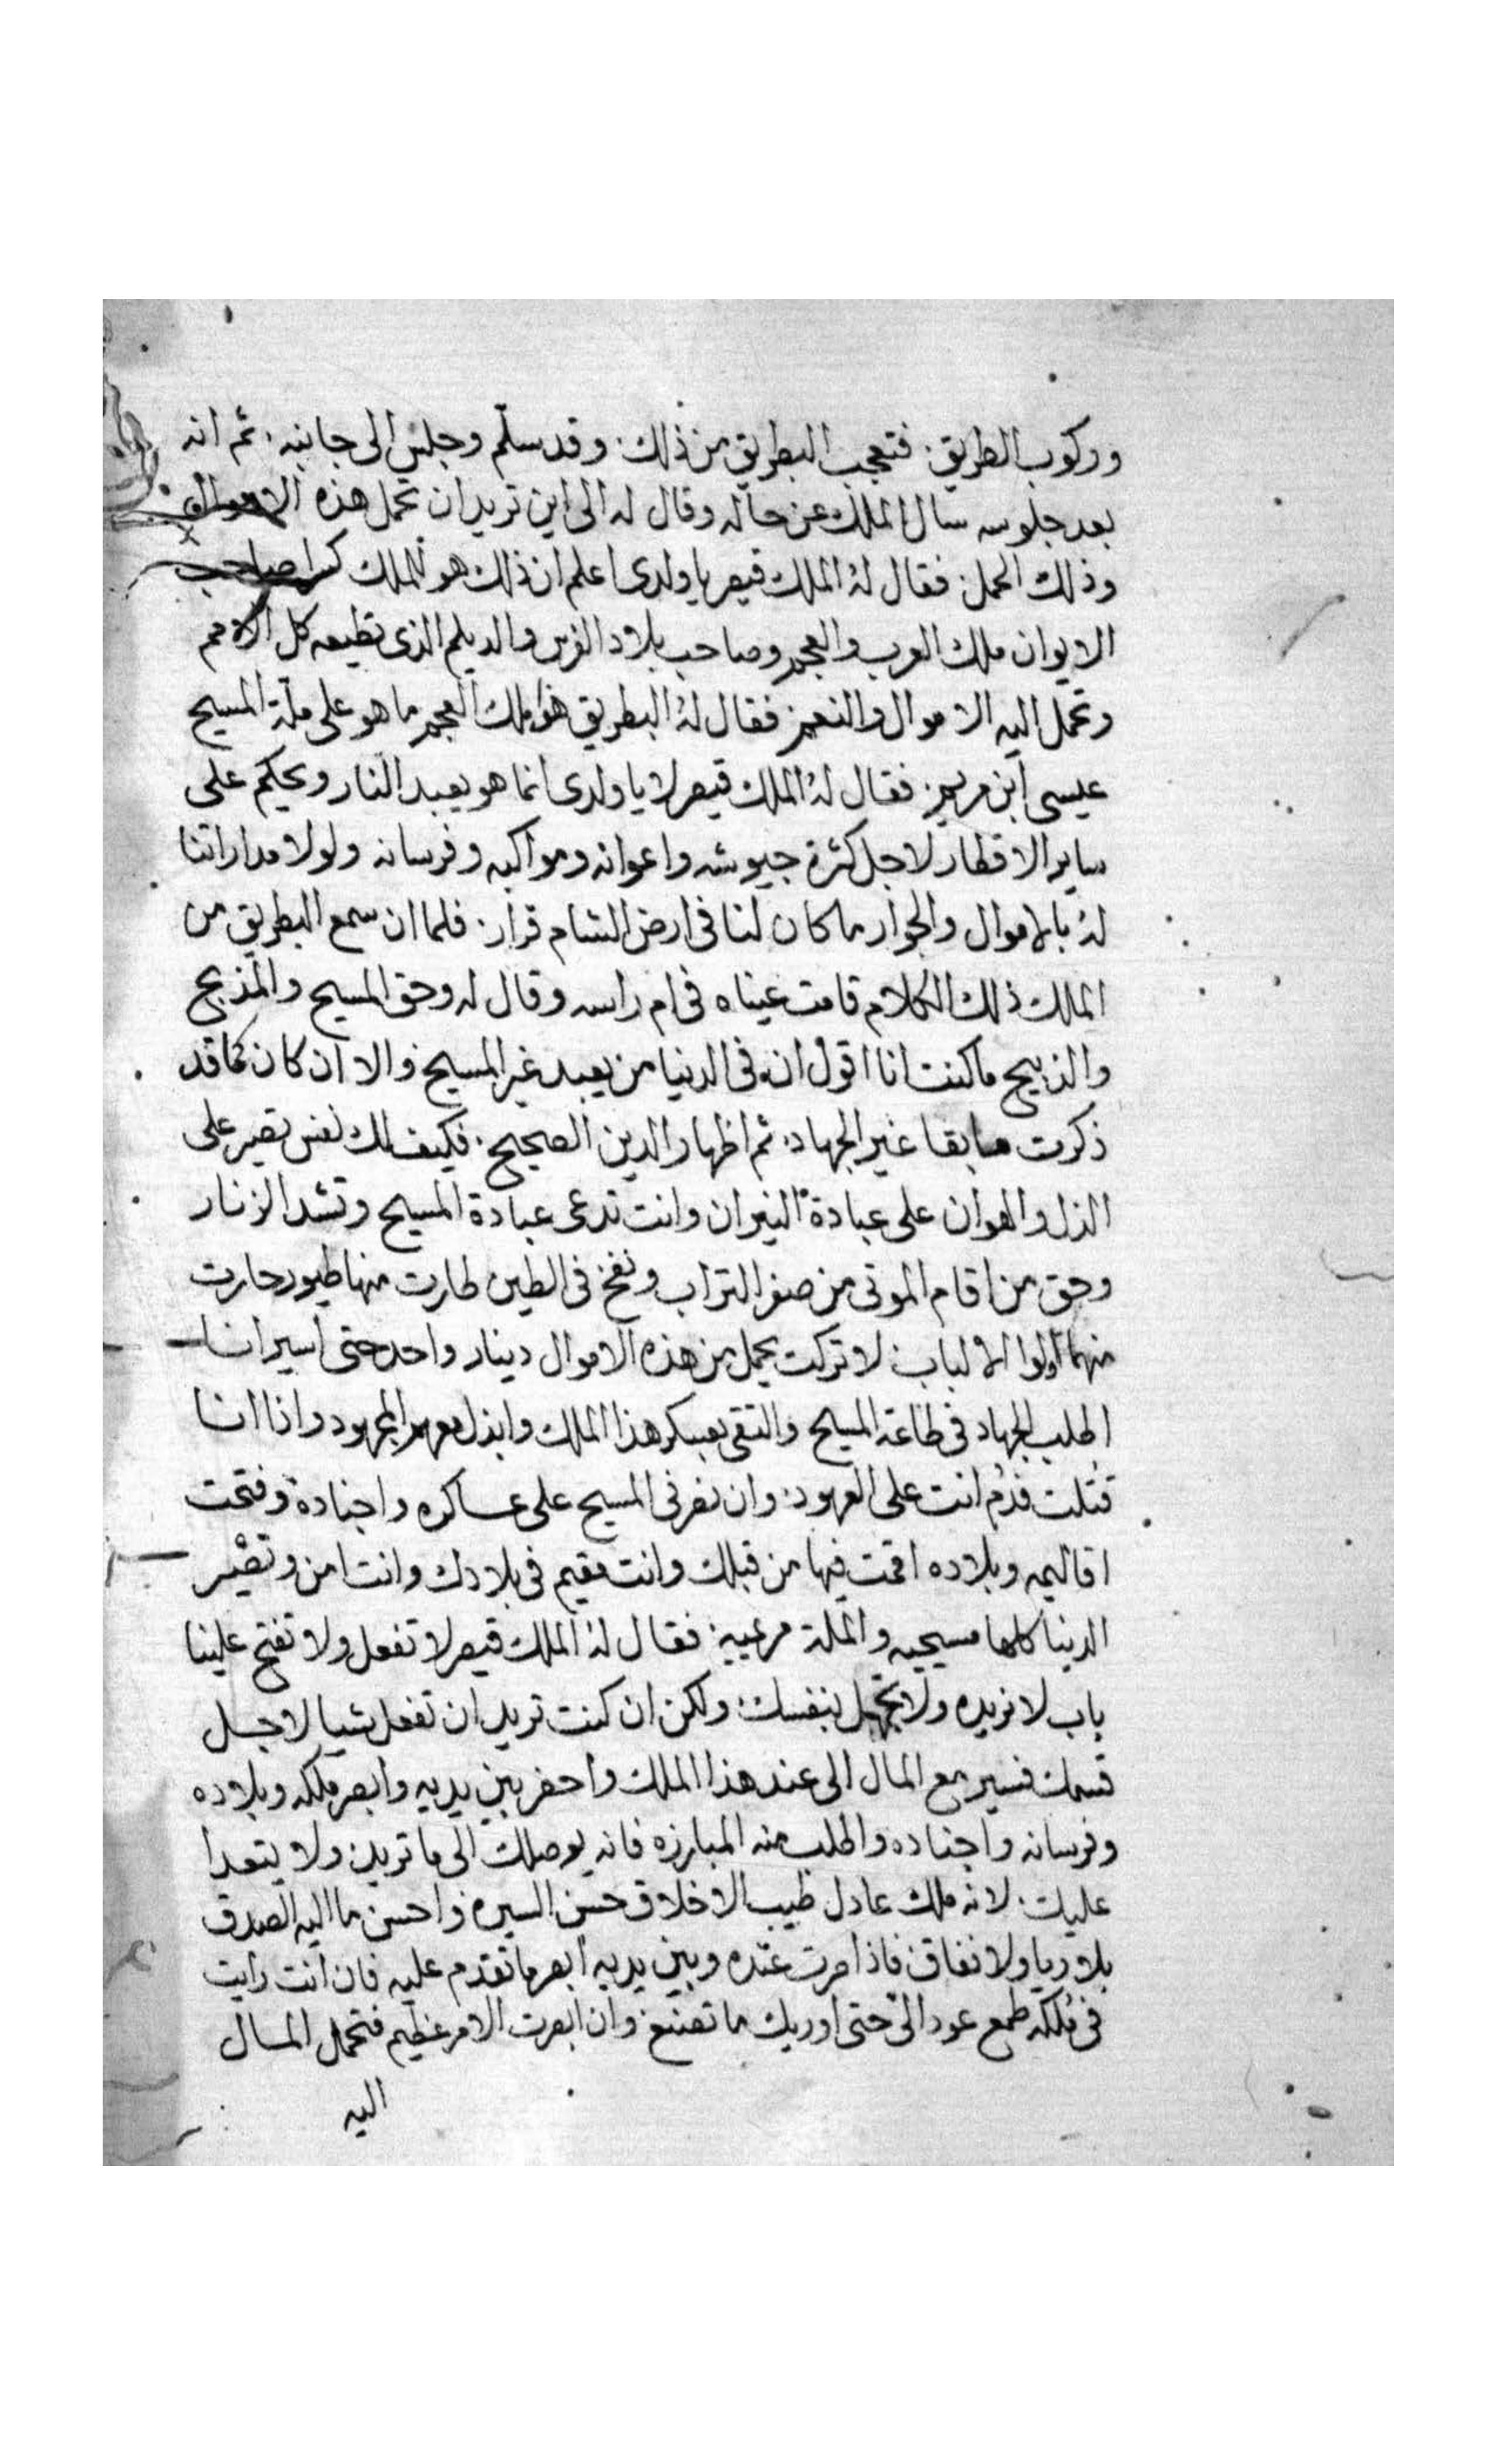 وركوب الطريق. فتعجب البطريق من ذلك. وقد سلم وجلس الى جانبه. ثم انه
بعد جلوسه سال الملك عن حاله وقال له الى اين تريد ان تحمل هذه الاموال
وذلك الحمل: فقال لهُ الملك قيصر يا ولدى اعلم ان ذلك هو للملك كسرا صاحب
الايوان ملك العرب والعجم وصاحب بلاد الفرس والديلم الذى تطيعه كل الامم
وتحمل اليه الاموال والنعم: فقال لهُ البطريق هوا ملك العجم ما هو على ملة المسيح
عيسى ابن مريم: فقال لهُ الملك قيصر لا يا ولدى انما هو يعبد النار ويحكم على
ساير الاقطار لاجل كثرة جيوشه واعوانه ومواكبه وفرسانه ولولا مداراتنا
لهُ بالاموال والجوار ما كان لنا فى ارض الشام قرار. فلما ان سمع البطريق من
الملك ذلك الكلام قامت عيناه فى ام راسه وقال له وحق المسيح والمذبح
والذبيح ما كنت انا اقول ان فى الدنيا من يعبد غير المسيح والا ان كان كما قد
ذكرت سابقا غير الجهاد. ثم اظهار الدين الصحيح. فكيف لك نفس تصبر على
الذل والهوان على عبادة النيران وانت تدعى عبادة المسيح وتشد الزنار
وحق من اقام الموتى من صفر التراب ونفخ فى الطين طارت منها طيور حارت
منهما اولوا الالباب: لا تركت يحمل من هذه الاموال دينار واحد حتى اسير انا
اطلب الجهاد فى طاعة المسيح والتقى بعسكر هذا الملك وابذل معهم المجهود واذا انا
قُتلت فدُم انت على العهود: وان نصرنى المسيح على عساكره واجناده وفتحت
اقاليمه وبلاده اقمت فيها من قبلك وانت مقيم فى بلادك وانت امن وتصْير
الدنيا كلها مسيحيه والملة مريمية: فقال لهُ الملك قيصر لا تفعل ولا تفتح علينا
باب لا نريده ولا تجهل بنفسك: ولكن ان كنت تريد ان تفعل شيا لاجل
قسمك فسير مع المال الى عند هذا الملك واحضر بين يديه وابصر ملكه وبلاده
وفرسانه واجناده واطلب منه المبارزه فانه يوصلك الى ما تريد ولا يتعدا
عليك. لانه ملك عادل طيب الاخلاق حسن السيره واحسن ما اليه الصدق
بلا ريا ولا نفاق فاذا صرت عنده وبين يديه ابصر ما تقدم عليه فان انت رايت
فى مُلكه طمع عود الىّ حتى اوريك ما تصنع وان ابصرت الامر عظيم فتحمل المال
اليه